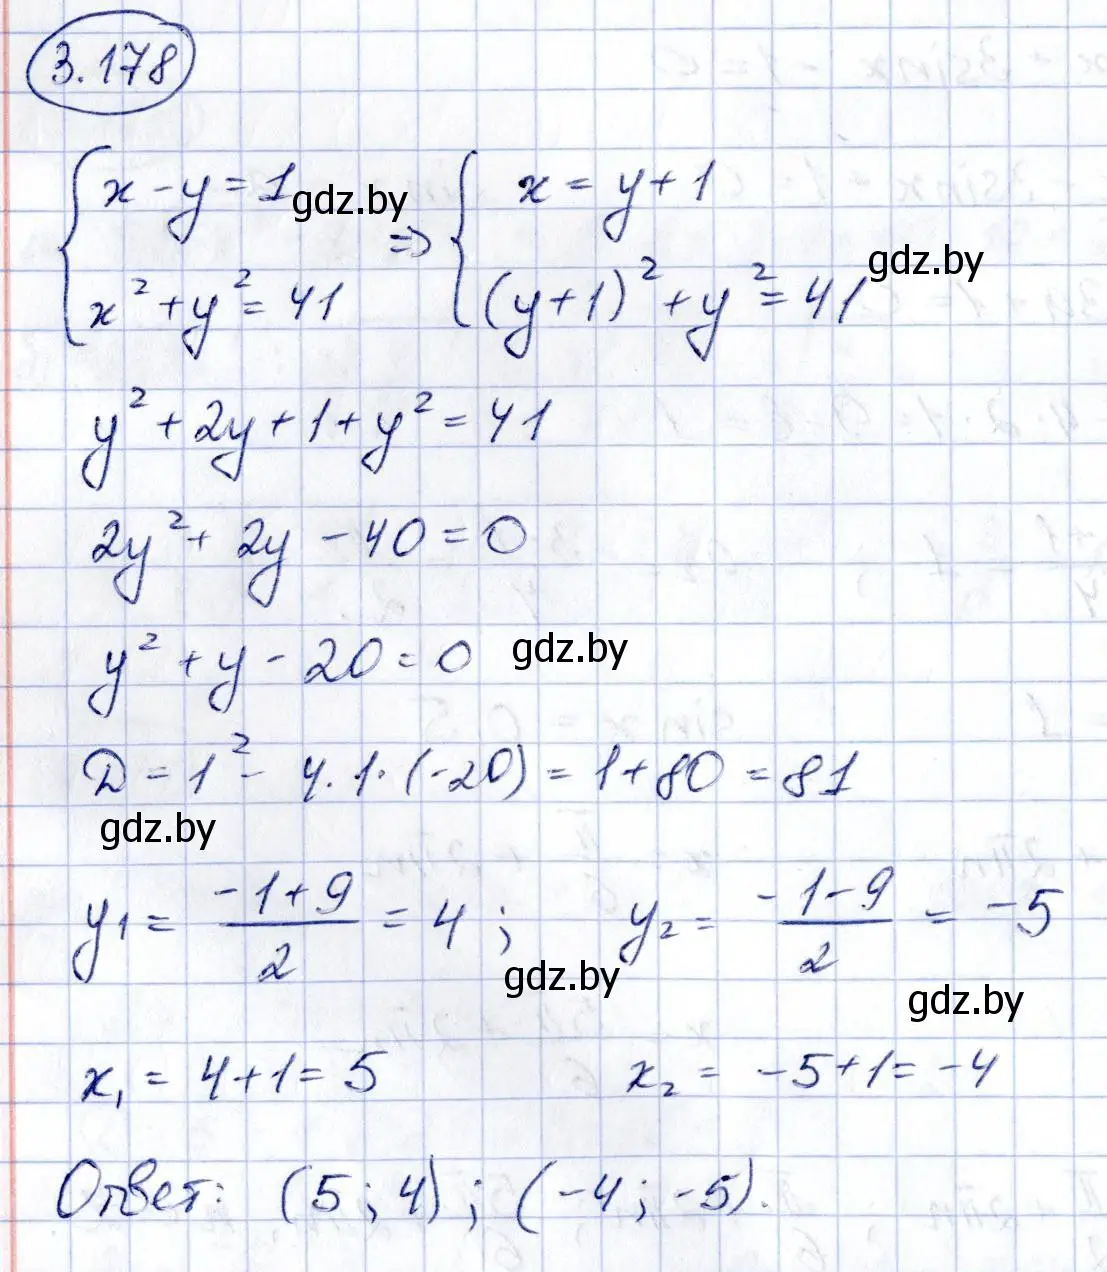 3.178
{ x - y = 1 gdz.by ⇒ { x = y + 1
x² + y² = 41 (y+1)² + y² = 41 gdz.by
y² + 2y + 1 + y² = 41
2y² + 2y - 40 = 0
y² + y - 20 = 0 gdz.by
D = 1² - 4·1·(-20) = 1 + 80 = 81
gdz.by
y₁ = (-1+9)/2 = 4 ; y₂ = (-1-9)/2 = -5
gdz.by gdz.by
x₁ = 4+1 = 5 x₂ = -5+1 = -4
Ответ: (5; 4) ; (-4; -5).